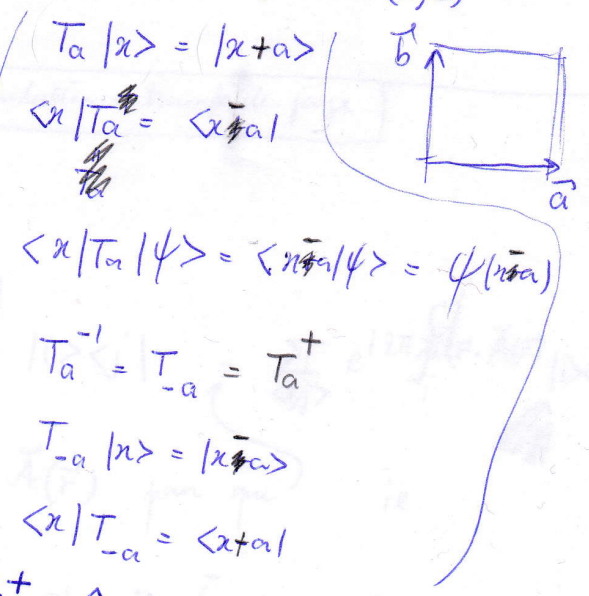 Tₐ |x> = |x+a>
<x|Tₐ = <x-a|
<x|Tₐ|ψ> = <x-a|ψ> = ψ(x-a)
Tₐ⁻¹ = T₋ₐ = Tₐ⁺
T₋ₐ |x> = |x-a>
<x|T₋ₐ = <x+a|
b⃗
a⃗
+